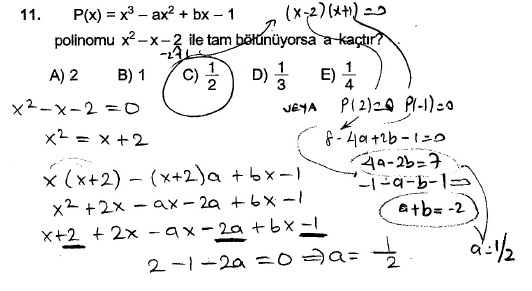 11. P(x) = x³ – ax² + bx – 1
(x-2)(x+1)=0
polinomu x² – x – 2 ile tam bölünüyorsa a kaçtır?
-2+1
A) 2 B) 1 C) 1/2 D) 1/3 E) 1/4
x² - x - 2 = 0
VEYA P(2)=0 P(-1)=0
x² = x + 2
8 - 4a + 2b - 1 = 0
4a - 2b = 7
x(x+2) - (x+2)a + bx - 1
-1 - a - b - 1 = 0
x² + 2x - ax - 2a + bx - 1
a + b = -2
x + 2 + 2x - ax - 2a + bx - 1
2 - 1 - 2a = 0 ⇒ a = 1/2
a = 1/2